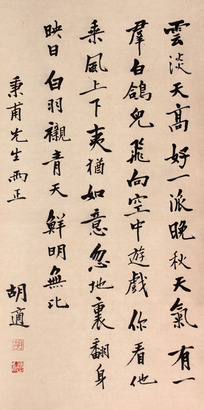 雲淡天高好一派晚秋天氣有一
羣白鴿兒飛向空中遊戲你看他
乘風上下夷猶如意忽地裏翻身
映日白羽襯青天鮮明無比
秉甫先生兩正
胡適